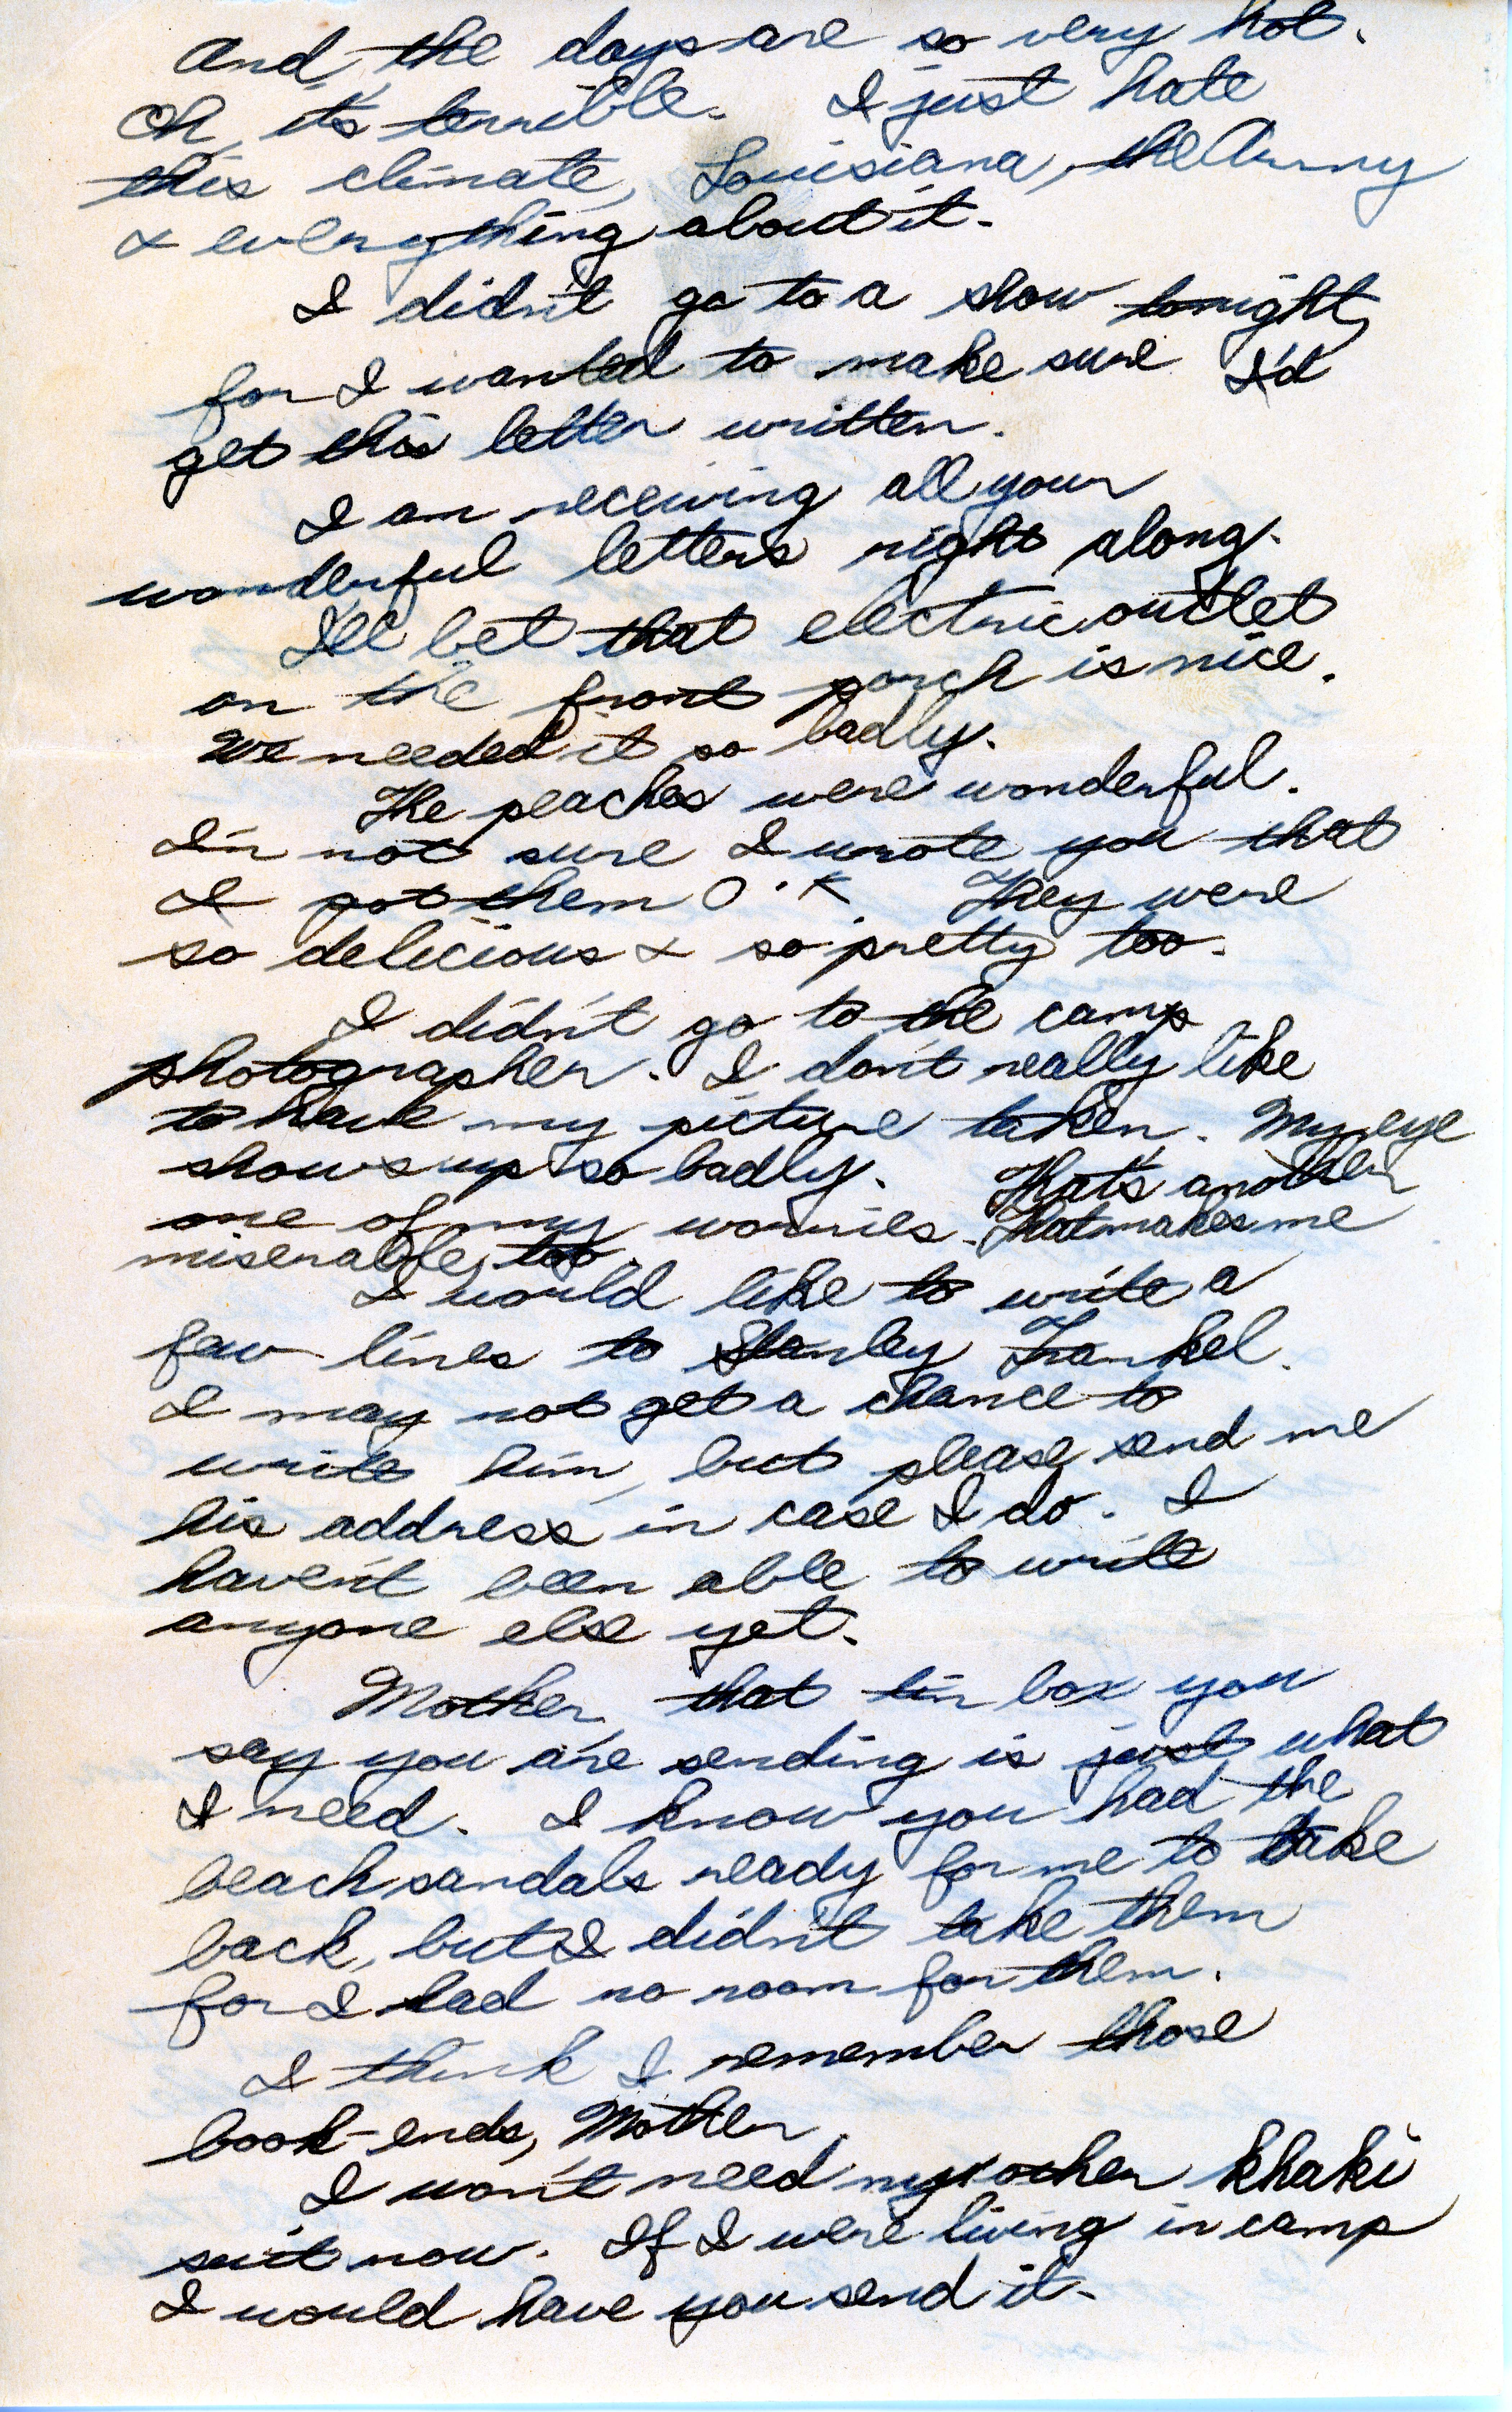 And the days are so very hot.
Oh, it's terrible. I just hate
this climate, Louisiana, the Army
& everything about it.
I didn't go to a show tonight,
for I wanted to make sure I'd
get this letter written.
I am receiving all your
wonderful letters right along.
I'll bet that electric outlet
on the front porch is nice.
We needed it so badly.
The peaches were wonderful.
I'm not sure I wrote you that
I got them O.K. They were
so delicious & so pretty too.
I didn't go to the camp
photographer. I don't really like
to have my picture taken. My eye
shows up so badly. That's another
one of my worries. That makes me
miserable, too.
I would like to write a
few lines to Stanley Frankel.
I may not get a chance to
write him, but please send me
his address in case I do. I
haven't been able to write
anyone else yet.
Mother, that tin box you
say you are sending is just what
I need. I know you had the
beach sandals ready for me to take
back, but I didn't take them
for I had no room for them.
I think I remember those
book-ends, Mother.
I won't need my other khaki
suit now. If I were living in camp
I would have you send it.